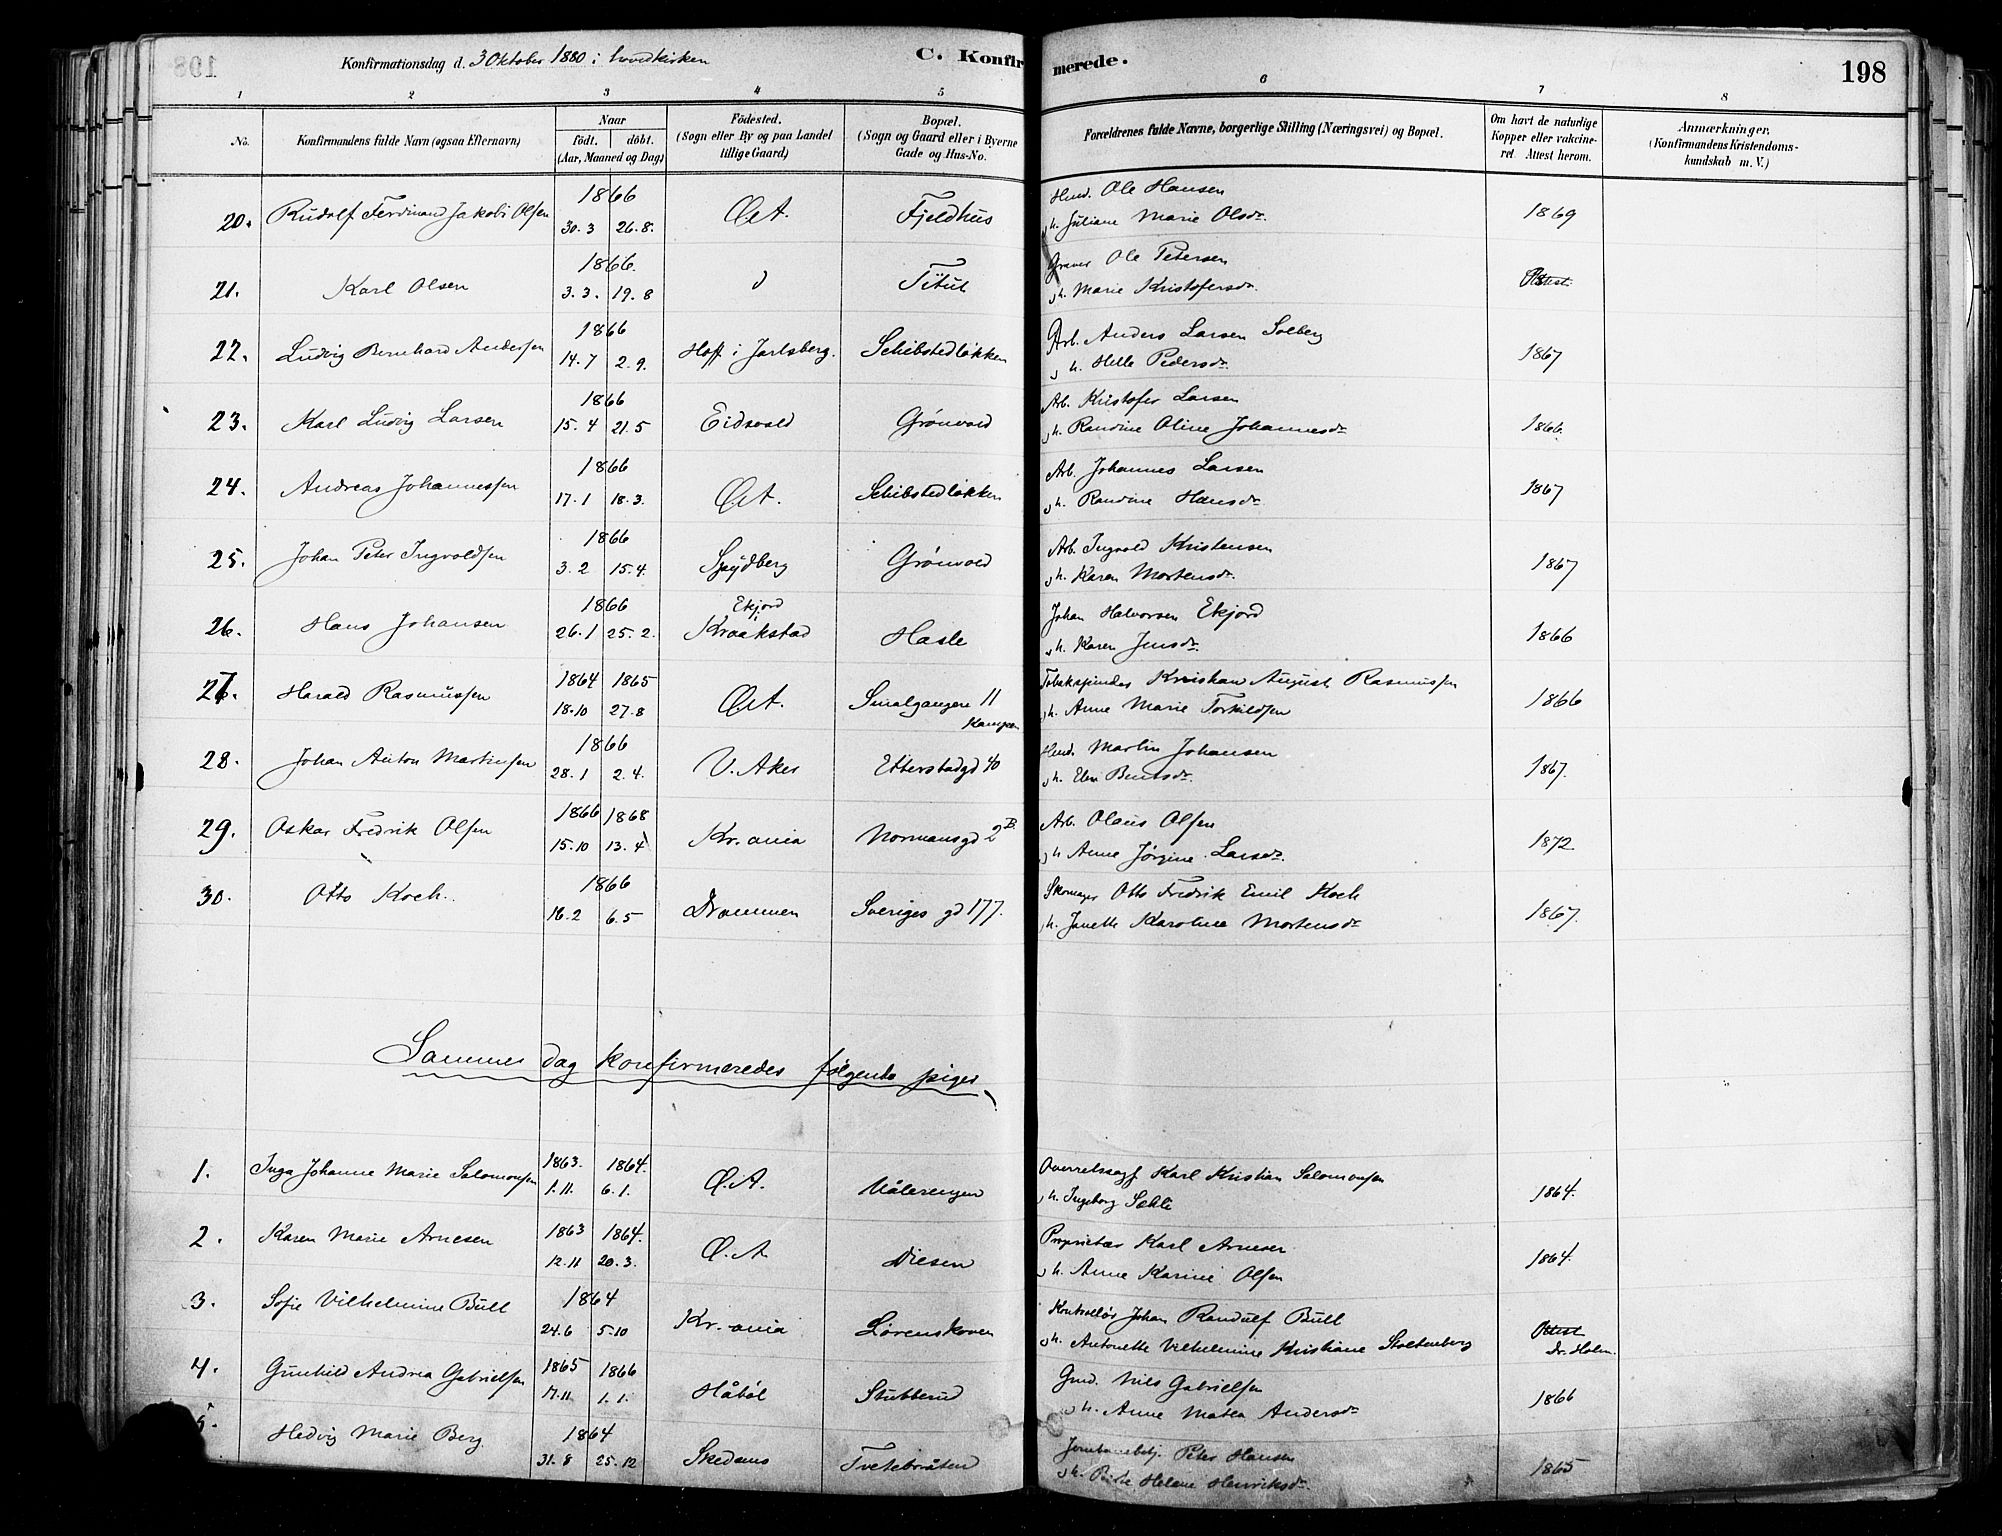 Konfirmationsdag d. 3 Oktober 1880 i hovedkirken
C. Konfirmerede.
198
1 2 3 4 5 6 7 8
No.
Konfirmandens fulde Navn (ogsaa Efternavn)
Naar
födt. döbt.
(Aar, Maaned og Dag)
Födested.
(Sogn eller By og paa Landet
tillige Gaard)
Bopæl.
(Sogn og Gaard eller i Byerne
Gade og Hus-No.
Forældrenes fulde Navne, borgerlige Stilling (Næringsvei) og Bopæl.
Om havt de naturlige
Kopper eller vakcine-
ret. Attest herom.
Anmærkninger,
(Konfirmandens Kristendoms-
kundskab m. V.)
20. Rudolf Ferdinand Jakobi Olsen 1866 30.3 26.8. Ø.A. Fjeldhus
Hmd. Ole Hansen
h. Juliane Marie Olsdr. 1869
21. Karl Olsen 1866. 3.3. 19.8 Titut
Graver Ole Petersen
h. Marie Kristofersdr. Attest
22. Ludvig Bernhard Andersen 1866 14.7 2.9. Hoff i Jarlsberg. Schibstedløkken
Arb. Anders Larsen Solberg
h. Helle Pedersdr. 1867
23. Karl Ludvig Larsen 1866 15.4 21.5 Eidsvold Grönvold
Arb. Kristofer Larsen
h. Randine Oline Johannesdr 1866.
24. Andreas Johannessen 1866 17.1 18.3. Ø.A. Schibstedløkken
Arb. Johannes Larsen
h. Randine Hansdr. 1867
25. Johan Peter Ingvoldsen 1866 3.2 15.4. Spydberg Grönvold
Arb. Ingvold Kristensen
h. Karen Mortensdr. 1867
26. Hans Johansen 1866 26.1 25.2. Ekjord Kraakstad Hasle
Johan Halvorsen Ekjord
h. Karen Jensdr. 1866
27. Harald Rasmussen 1864 1865 18.10 27.8 Ø.A. Smalgangen 11 Kampen
Tobakspinder Kristian August Rasmussen
h. Anne Marie Torkildsen 1866
28. Johan Anton Martinsen 1866 28.1 2.4. V. Aker Etterstadgd 40
Hmd. Martin Johansen
h. Elen Berntsdr. 1867.
29. Oskar Fredrik Olsen 1866 1868 15.10 13.4 Kr.ania Normansgd 2 B.
Arb. Olaus Olsen
h. Anne Jørgine Larsdr. 1872
30. Otto Koch. 1866 16.2 6.5 Drammen Sveriges gd 177.
Skomager Otto Fredrik Emil Koch
h. Janette Karoline Mortensdr 1867.
Sammes dag konfirmeredes følgende piger
1. Inga Johanne Marie Salomonsen 1863. 1864. 1.11. 6.1. Ø.A. Vålerengen
Overretssagf Karl Kristian Salomonsen
h. Ingeborg Sæhli 1864.
2. Karen Marie Arnesen 1863 1864. 12.11 20.3. Ø.A. Diesen
Proprietær Karl Arnesen
h. Anne Karine Olsen 1864.
3. Sofie Vilhelmine Bull 1864 24.6 5.10 Kr.ania Lørenskoven
Kontrollør Johan Randulf Bull
h. Antonette Vilhelmine Kristiane Stoltenberg Attest Dr. Holm.
4. Gunhild Andrea Gabrielsen 1865 1866 17.11 1.1. Håböl Stubberud
Gmd. Nils Gabrielsen
h. Anne Matea Andersdr 1866
5. Hedvig Marie Berg. 1864 31.8 25.12 Skedsmo Tvetebråten
Jernbanebetj. Peter Hansen
h. Helene Henriksdr. 1865